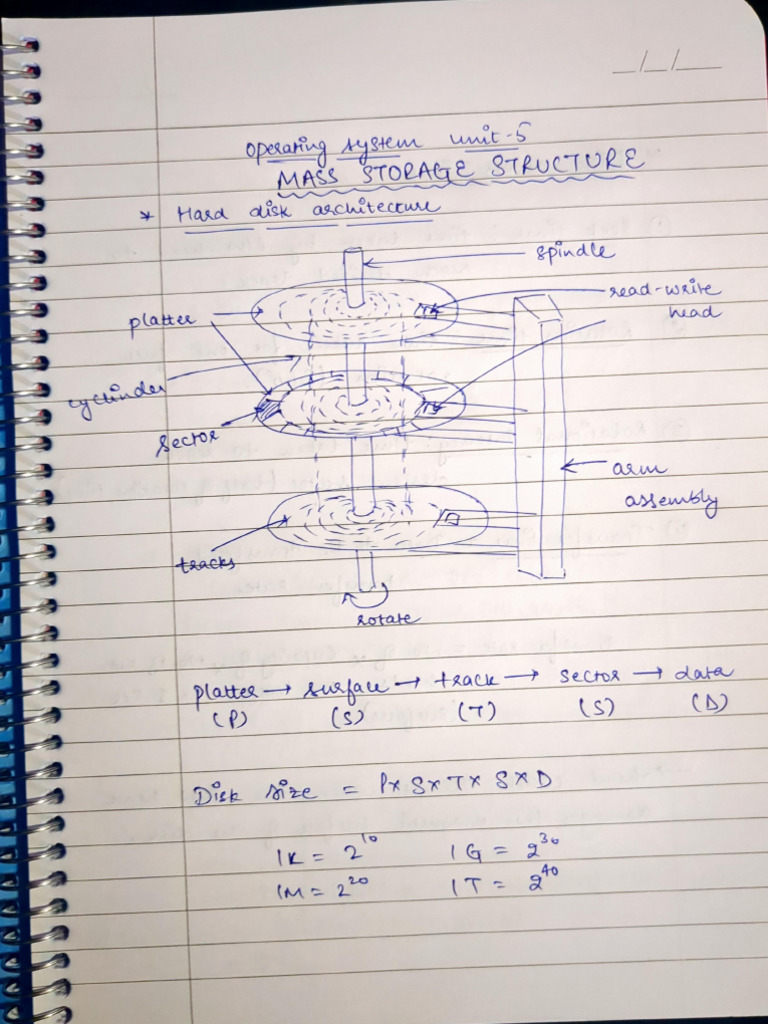 _/_/__
Operating system unit-5
MASS STORAGE STRUCTURE
* Hard disk architecture
spindle
read-write
head
platter
cyclinder
sector
arm
assembly
tracks
rotate
platter → surface → track → sector → data
(P) (S) (T) (S) (D)
Disk size = P x S x T x S x D
1K = 2^10 1G = 2^30
1M = 2^20 1T = 2^40